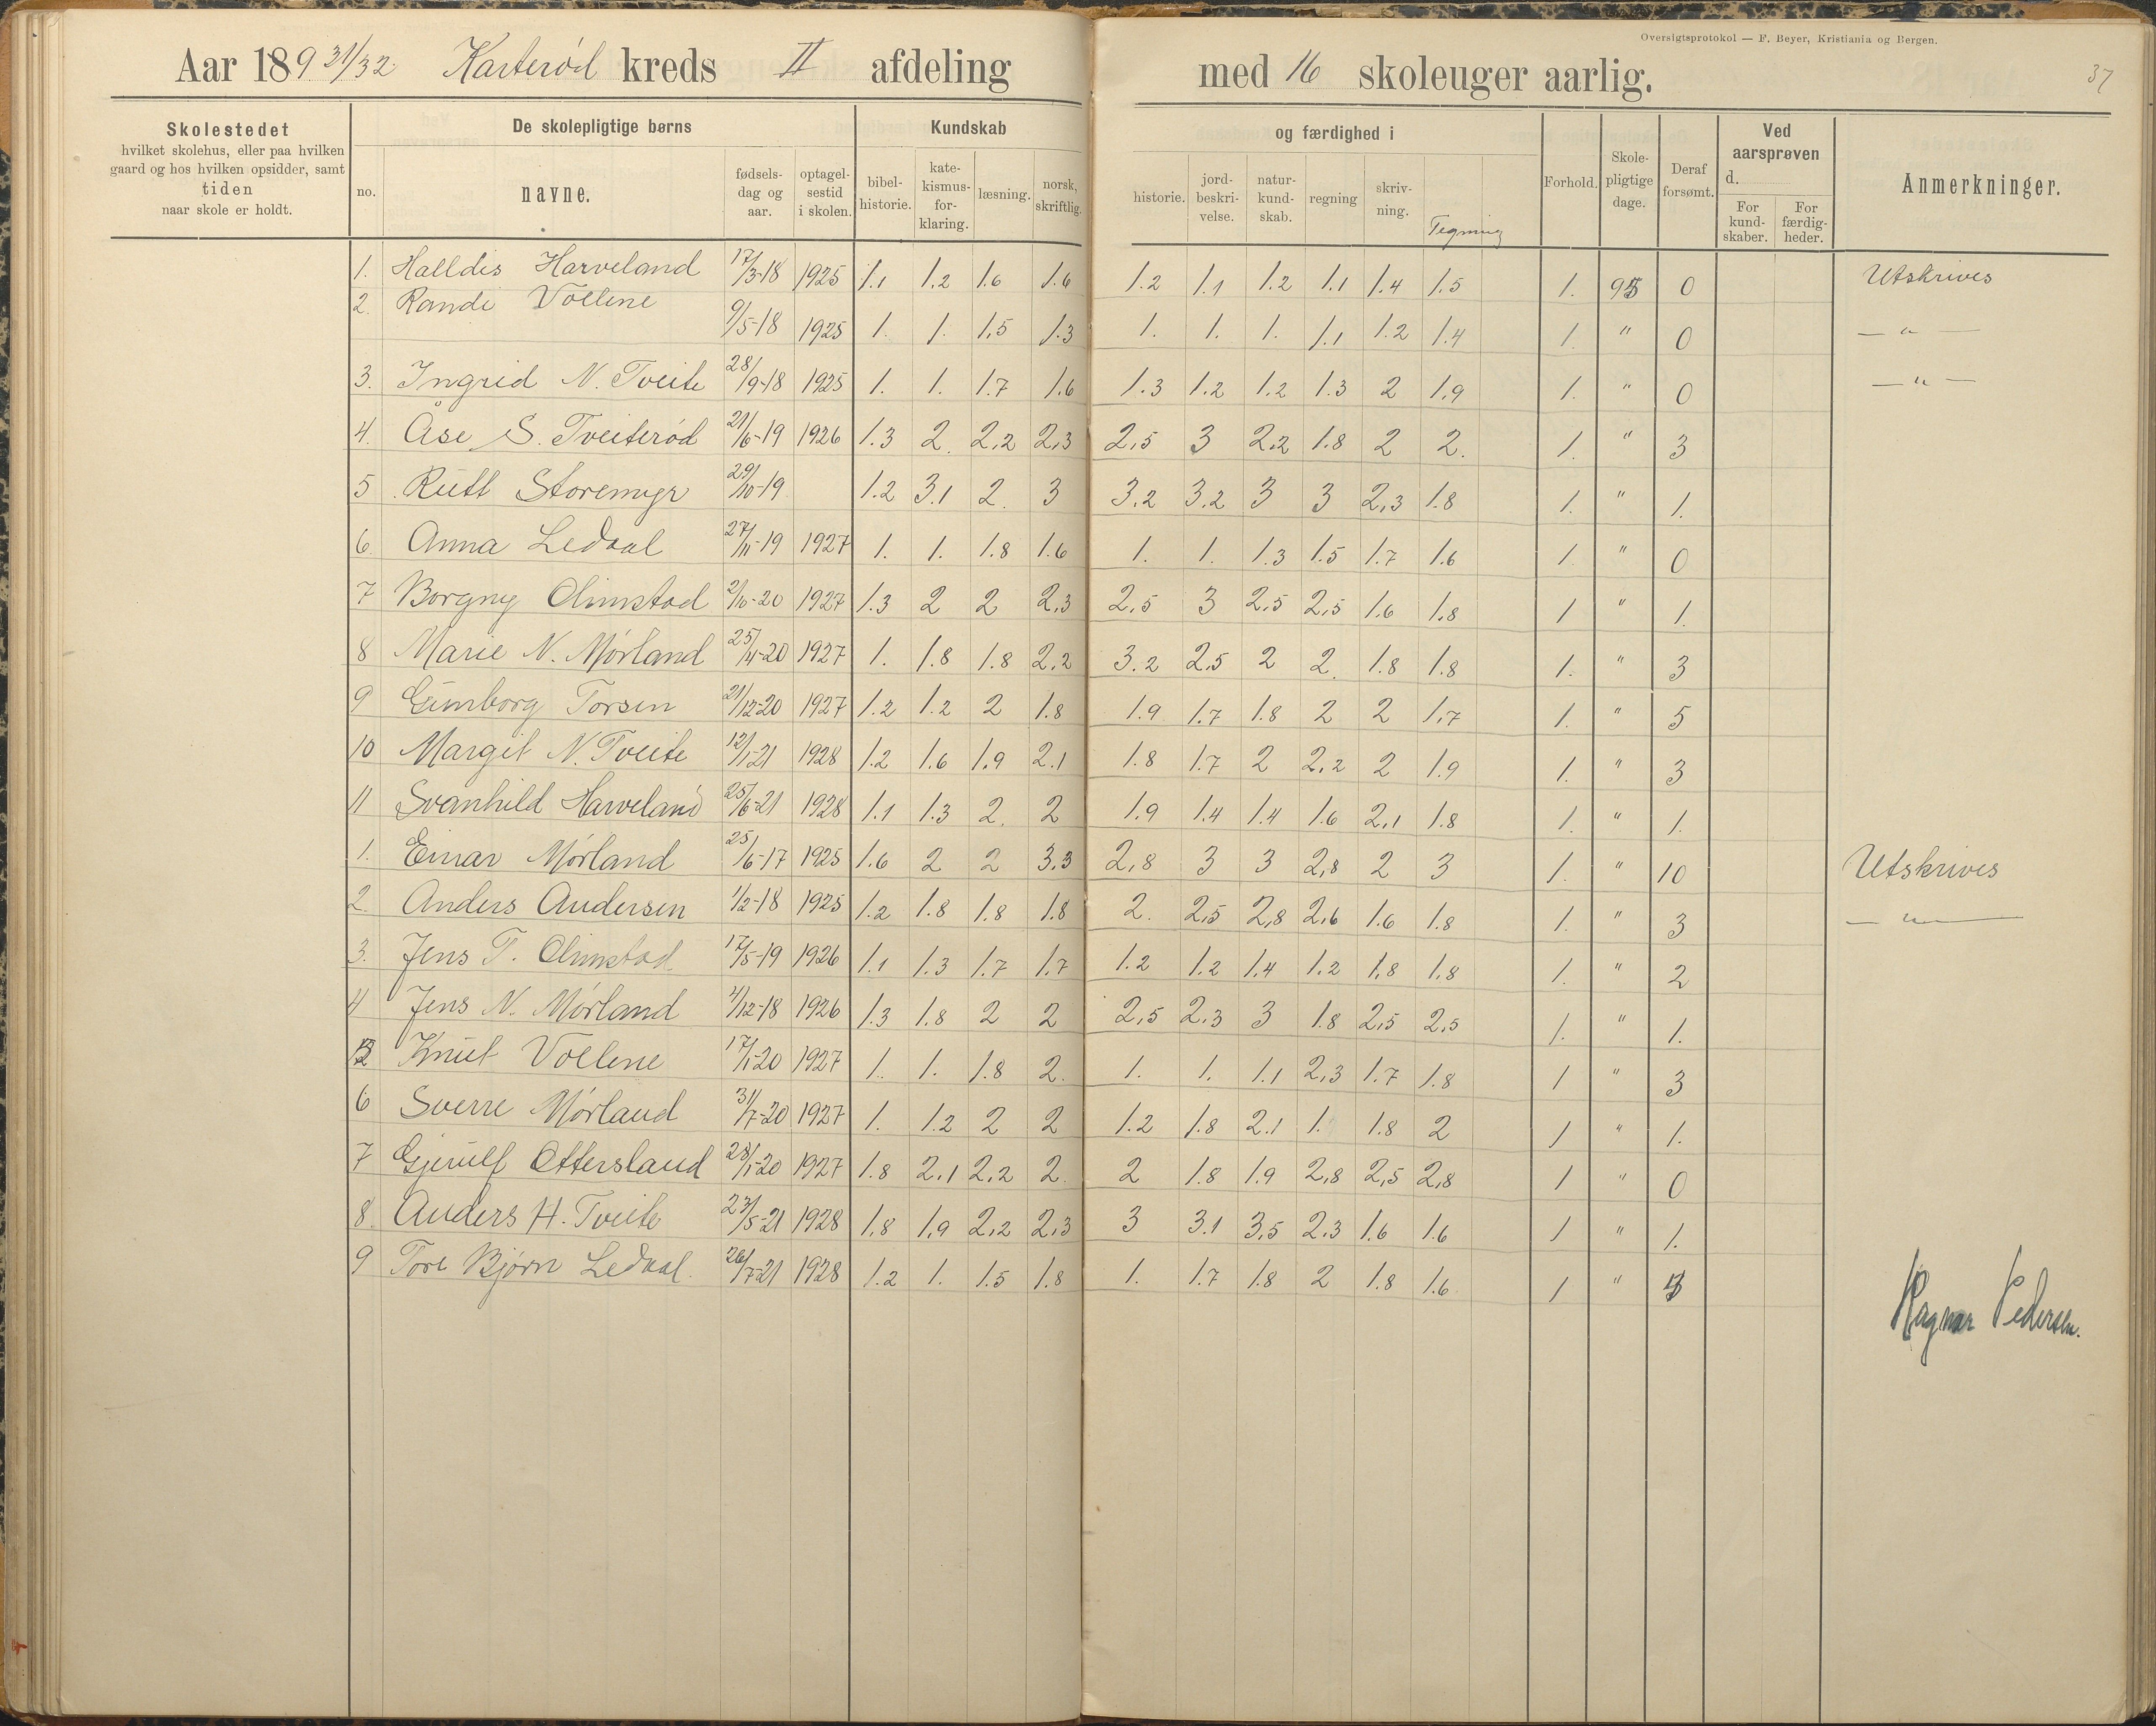 Oversigtsprotokol — F. Beyer, Kristiania og Bergen.
Aar 189 31/32. Karterød kreds II afdeling med 16 skoleuger aarlig. 37
Skolestedet
hvilket skolehus, eller paa hvilken
gaard og hos hvilken opsidder, samt
tiden
naar skole er holdt.
De skolepligtige børns
no. navne. fødsels-dag og aar. optagel-sestid i skolen.
Kundskab og færdighed i
bibel-historie. kate-kismus-for-klaring. læsning. norsk, skriftlig. historie. jord-beskri-velse. natur-kund-skab. regning skriv-ning. Tegning
Forhold. Skole-pligtige dage. Deraf forsømt.
Ved aarsprøven d.
For kund-skaber. For færdig-heder.
Anmerkninger.
1. Halldis Harveland 17/3-18 1925 1.1 1.2 1.6 1.6 1.2 1.1 1.2 1.1 1.4 1.5 1. 95 0 Utskrives
2. Randi Vollene 9/5-18 1925 1. 1. 1.5 1.3 1. 1. 1. 1.1 1.2 1.4 1. " 0 — " —
3. Ingrid N. Tveite 28/9-18 1925 1. 1. 1.7 1.6 1.3 1.2 1.2 1.3 2 1.9 1. " 0 — " —
4. Åse S. Tveiterød 21/6-19 1926 1.3 2. 2.2 2.3 2.5 3 2.2 1.8 2 2. 1. " 3
5. Ruth Storemyr 29/10-19 1.2 3.1 2. 3 3.2 3.2 3 3 2.3 1.8 1. " 1.
6. Anna Ledaal 27/11-19 1927 1. 1. 1.8 1.6 1. 1. 1.3 1.5 1.7 1.6 1. " 0
7 Borgny Olimstad 2/10-20 1927 1.3 2 2 2.3 2.5 3 2.5 2.5 1.6 1.8 1 " 1.
8 Marie N. Mørland 25/4-20 1927 1. 1.8 1.8 2.2 3.2 2.5 2 2. 1.8 1.8 1. " 3
9 Gunborg Torsen 21/12-20 1927 1.2 1.2 2 1.8 1.9 1.7 1.8 2 2 1.7 1. " 5
10 Margit N. Tveite 12/1-21 1928 1.2 1.6 1.9 2.1 1.8 1.7 2 2.2 2 1.9 1. " 3
11 Svanhild Harveland 25/6-21 1928 1.1 1.3 2. 2 1.9 1.4 1.4 1.6 2.1 1.8 1. " 1.
1. Einar Mørland 25/6-17 1925 1.6 2 2 3.3 2.8 3 3 2.8 2 3 1. " 10 Utskrives
2. Anders Andersen 1/2-18 1925 1.2 1.8 1.8 1.8 2. 2.5 2.8 2.6 1.6 1.8 1. " 3 — " —
3. Jens T. Olimstad. 17/5-19 1926 1.1 1.3 1.7 1.7 1.2 1.2 1.4 1.2 1.8 1.8 1. " 2
4 Jens N. Mørland 4/12-18 1926 1.3 1.8 2 2 2.5 2.3 3 1.8 2.5 2.5 1. " 1.
Knut Vollene 17/1-20 1927 1. 1. 1.8 2. 1. 1. 1.1 2.3 1.7 1.8 1 " 3
6 Sverre Mørland 31/7-20 1927 1. 1.2 2 2 1.2 1.8 2.1 1. 1.8 2 1 " 1.
7 Gjerulf Ottersland 28/1-20 1927 1.8 2.1 2.2 2. 2 1.8 1.9 2.8 2.5 2.8 1 " 0
8. Anders H. Tveite 23/5-21 1928 1.8 1.9 2.2 2.3 3 3.1 3.5 2.3 1.6 1.6 1 " 1.
9 Tore Bjørn Ledaal. 26/7-21 1928 1.2 1. 1.5 1.8 1. 1.7 1.8 2 1.8 1.6. 1 "
Ragnar Pedersen.